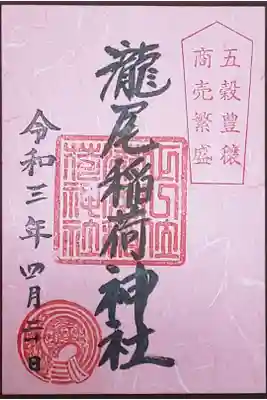 五穀豊穣
商売繁盛
龍尾稲荷神社
令和三年四月二日